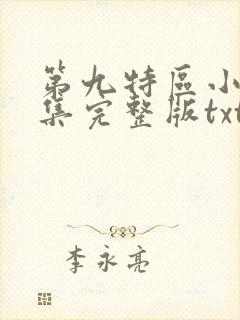 第九特區小
集完整版txt
李永亮